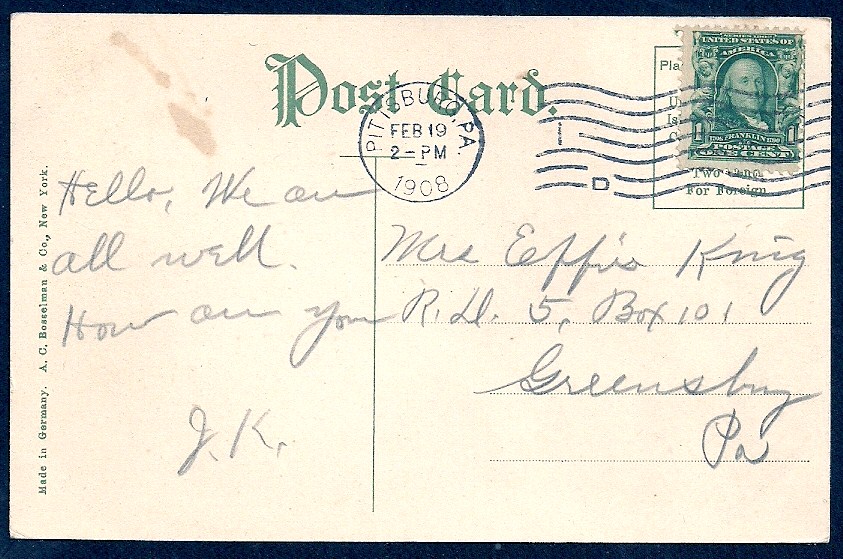 Post Card.
PITTSBURG, PA.
FEB 19
2-PM
1908
D
SERIES 1902
UNITED STATES OF
AMERICA
1 1706 FRANKLIN 1790 1
POSTAGE
ONE CENT
Pla
U
Is
C
Two Cents
For Foreign
Hello, We are
all well.
How are you
J. K.
Mrs Effie King
R. D. 5, Box 101
Greensburg
Pa
Made in Germany. A. C. Bosselman & Co., New York.